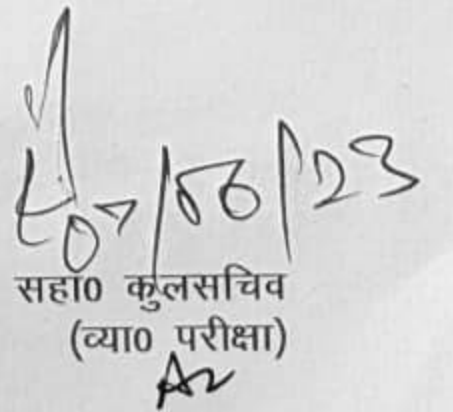 07/06/23
सहा0 कुलसचिव
(व्या0 परीक्षा)